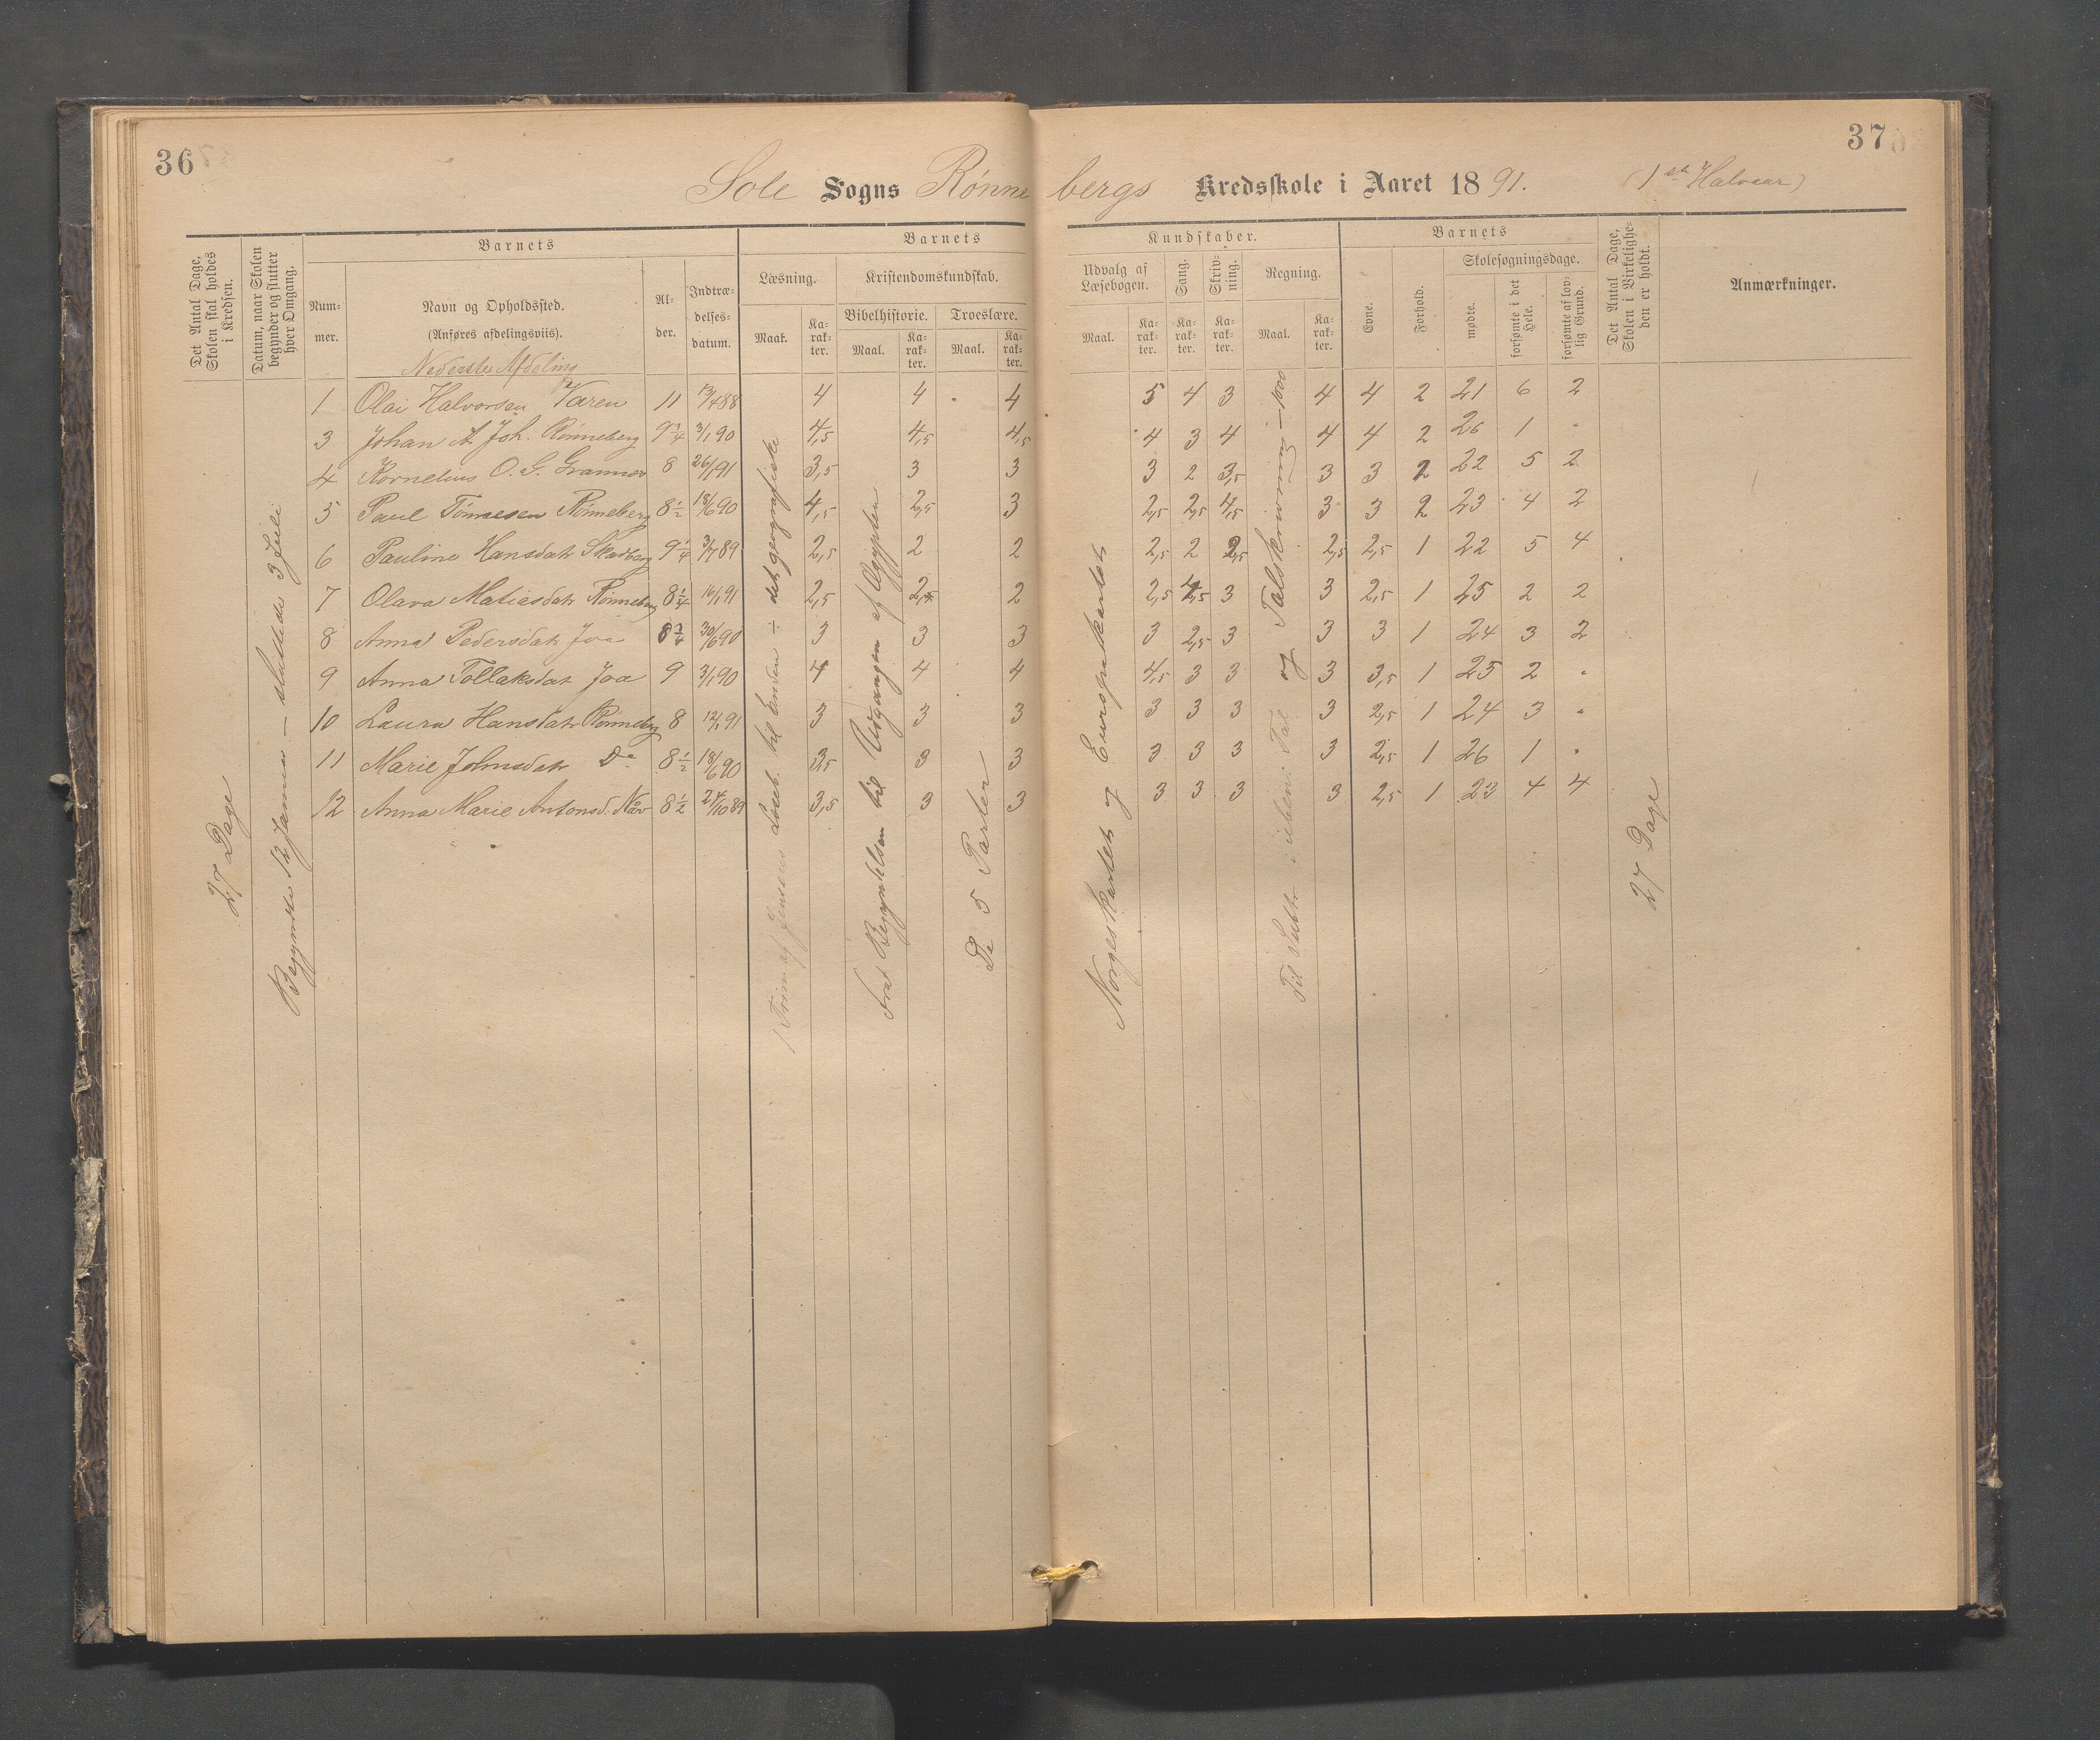 36
37
Sole Sogns Rønne bergs Kredsskole i Aaret 1891. (1ste Halvaar)
Det Antal Dage, Skolen skal holdes i Kredsen.
Datum, naar Skolen begynder og slutter hver Omgang.
Barnets
Nummer.
Navn og Opholdssted.
(Anføres afdelingsviis).
Alder.
Indtrædelsesdatum.
Barnets
Læsning.
Maal.
Karakter.
Kristendomskundskab.
Bibelhistorie.
Maal.
Karakter.
Troeslære.
Maal.
Karakter.
Kundskaber.
Udvalg af Læsebogen.
Maal.
Karakter.
Sang.
Karakter.
Skrivning.
Karakter.
Regning.
Maal.
Karakter.
Barnets
Evne.
Forhold.
Skolesøgningsdage.
mødte.
forsømte i det Hele.
forsømte af lovlig Grund.
Det Antal Dage, Skolen i Virkeligheden er holdt.
Anmærkninger.
Nederste Afdeling
1 Olai Halvorsen 11 13/4 88 4 4 4 5 4 3 4 4 2 21 6 2
3 Johan A. Joh. Rønneberg 9 3/4 3/1 90 4,5 4,5 4,5 4 3 4 4 4 2 26 1 "
4 Kornelius O. G. 8 26/1 91 3,5 3 3 3 2 3,5 3 3 2 22 5 2
5 Paul Tønnesen Rønneberg 8 1/2 18/6 90 4,5 2,5 3 2,5 2,5 4,5 3 3 2 23 4 2
6 Pauline Hansdatr Skadberg 9 1/4 3/7 89 2,5 2 2 2,5 2 2,5 2,5 2,5 1 22 5 4
7 Olava Matiasdatr Rønneberg 8 1/4 16/1 91 2,5 2,5 2 2,5 2,5 3 3 2,5 1 25 2 2
8 Anna Pedersdatr Joa 8 3/4 30/6 90 3 3 3 3 2,5 3 3 3 1 24 3 2
9 Anna Tollaksdatr Joa 9 3/1 90 4 4 4 4,5 3 3 3 3,5 1 25 2 "
10 Laura Hansdatr Rønneberg 8 12/1 91 3 3 3 3 3 3 3 2,5 1 24 3 "
11 Marie Johnsdatr Do 8 1/2 18/6 90 3,5 3 3 3 3 3 3 2,5 1 26 1 "
12 Anna Marie Antonsd. 8 1/2 24/10 89 3,5 3 3 3 3 3 3 2,5 1 23 4 4
27 Dage
Begyndte 12 Januar – sluttede 3 Juli
af Jensens Læseb. til Enden ÷ det geografiske
Fra Begyndelsen til Udgangen af Ægypten
De 5 Parter
Norgeskartet og Europakartet
Til Subtr. i ueben. Tal og Talskrivning – 1000
27 Dage